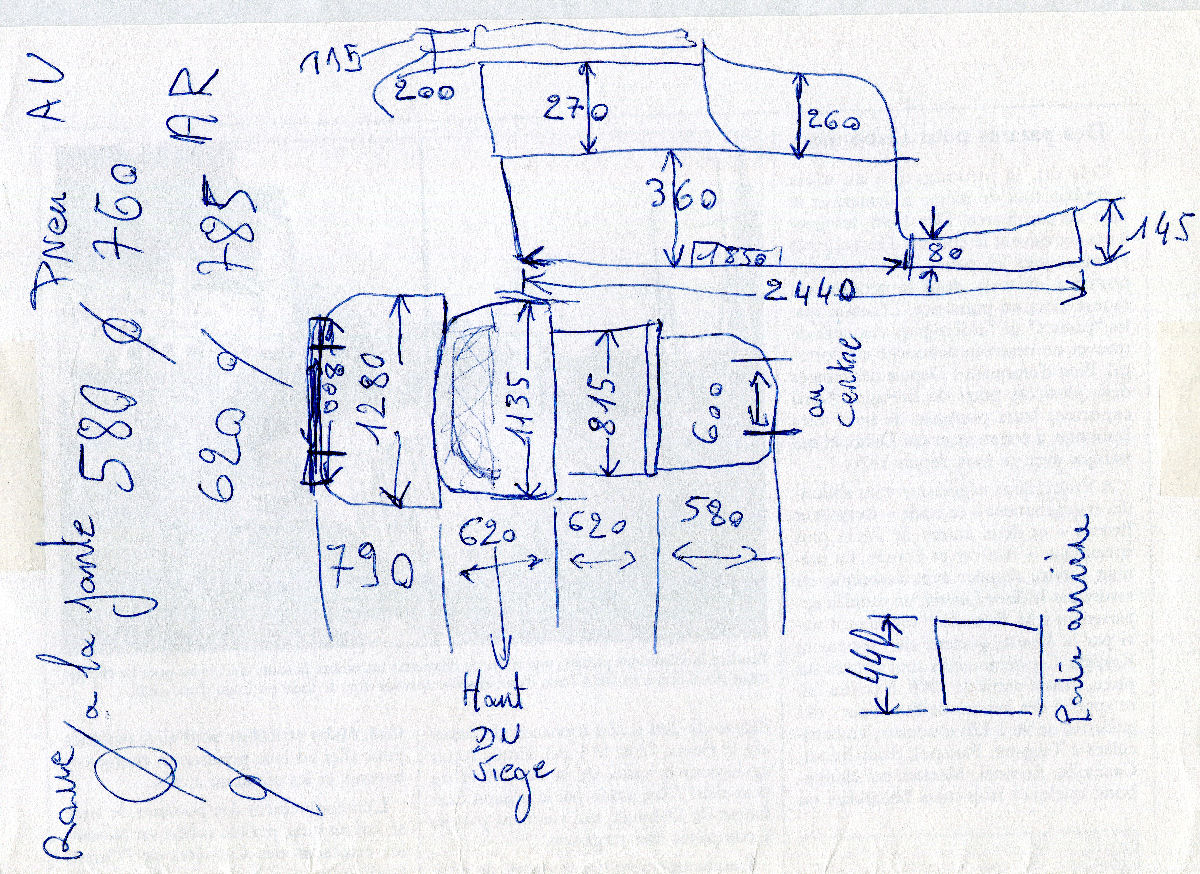 115
200
270
260
360
80
145
1850
2440
800
1280
1135
815
600
au
centre
790
620
620
580
Haut
DU
Siege
440
Portie arriere
Roue à la jante 580 Ø Pneu 760 AV
Ø 620 Ø 785 AR